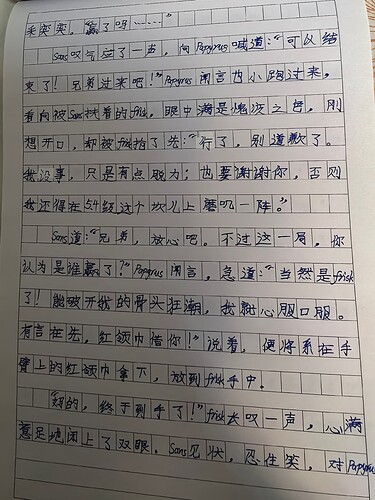 来奕奕，"赢了吗……"
Sans叹气应了一声，向Papyrus喊道："可以结
束了！兄弟过来吧！"Papyrus闻言也小跑过来，
看向被Sans扶着的frisk，眼中满是愧疚之色，刚
想开口，却被frisk抢了先："行了，别道歉了。
我没事，只是有点脱力；也要谢谢你，否则
我还得在54级这个坎儿上磨叽一阵。"
Sans道："兄弟，放心吧。不过这一局，你
认为是谁赢了？"Papyrus闻言，急道："当然是frisk
了！能破开我的骨头狂潮，我就心服口服。
有言在先，红领巾借你！"说着，便将系在手
臂上的红领巾拿下，放到frisk手中。
"好的，终于到手了！"frisk长叹一声，心满
意足地闭上了双眼。Sans见状，忍住笑，对Papyrus